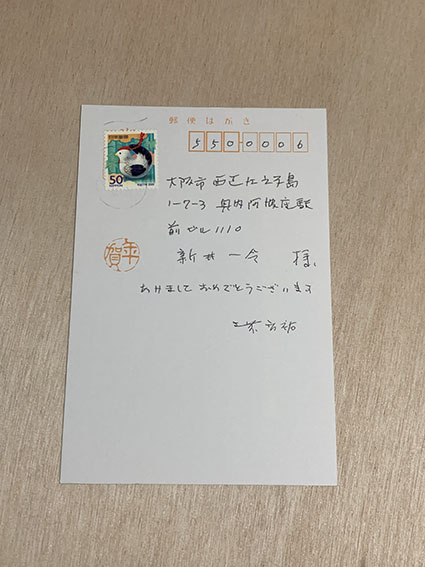 郵便はがき
日本郵便
50
NIPPON
5500006
大阪市西区江之子島
1-7-3 奥内阿波座駅
前ビル1110
新井一令 様
年賀
あけましておめでとうございます